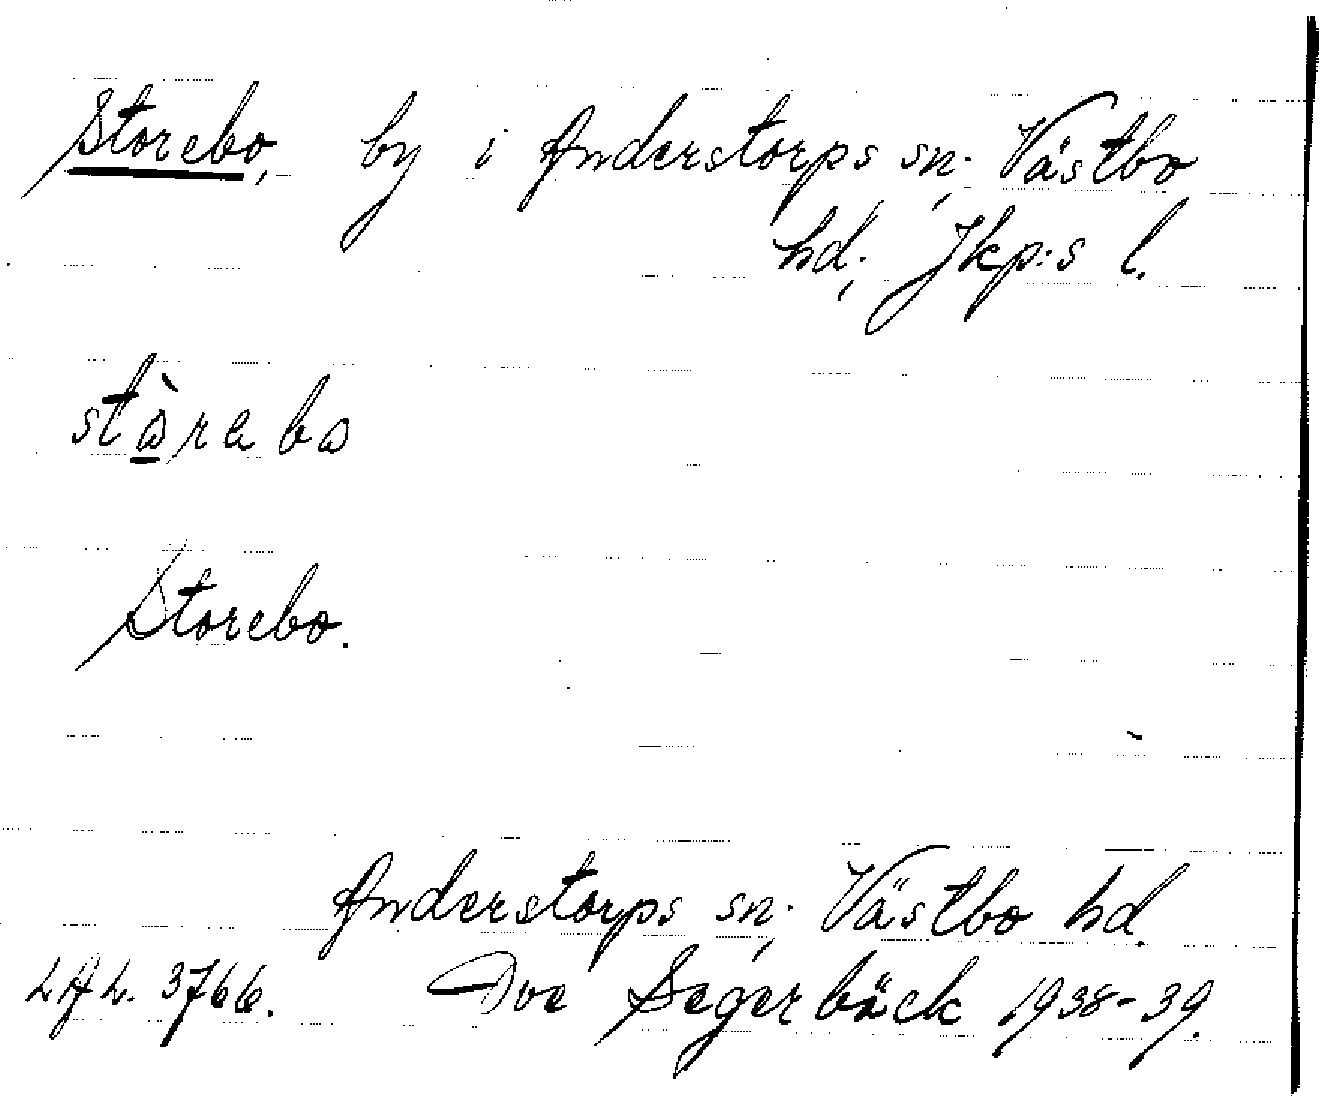 Storebo, by i Anderstorps sn; Västbo
hd; Jkp:s l.
Storebo.
Anderstorps sn; Västbo hd.
3766. Segerbäck 1938-39.